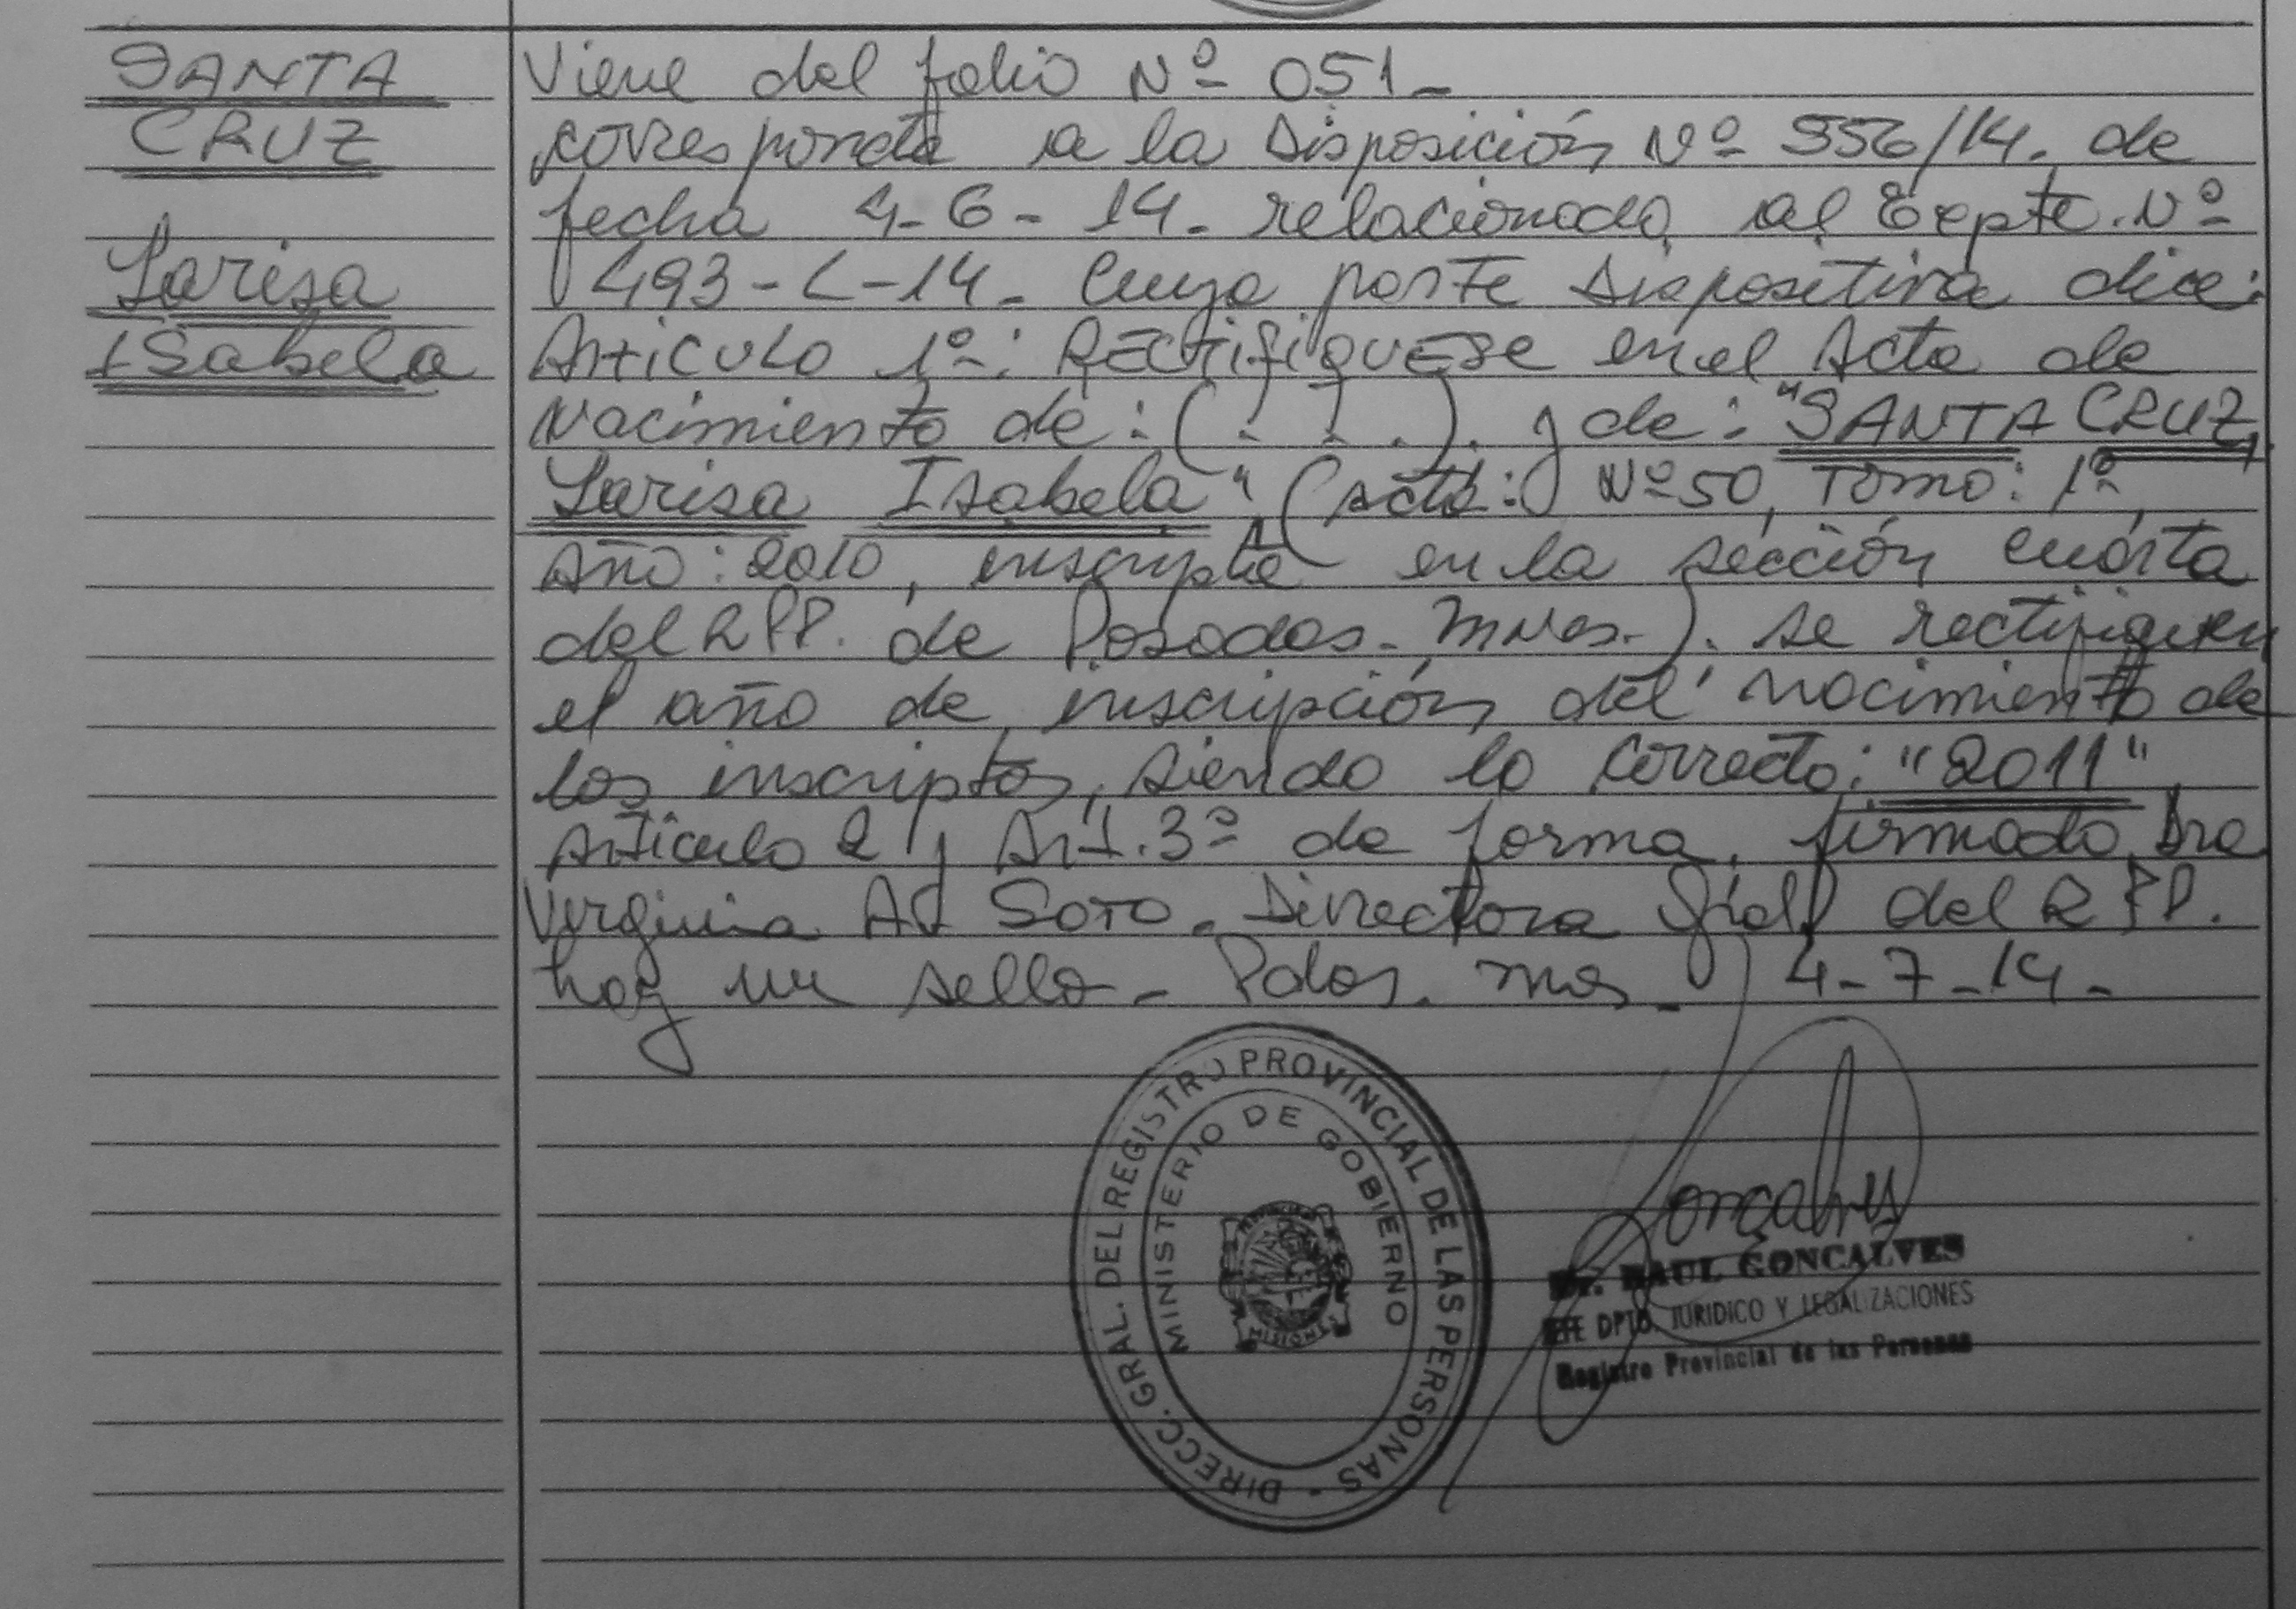 SANTA
CRUZ
Larisa
Isabela
Viene del folio Nº 051-
corresponde a la Disposición Nº 556/14. de
fecha 4-6-14. relacionado al Expte. Nº
493-L-14. Cuya parte Dispositiva dice:
Articulo 1º: RECtifiQUESE en el Acta de
Nacimiento de: (. . .). y de: "SANTA CRUZ,
Larisa Isabela", (Acta: Nº 50, Tomo: 1º,
Año: 2010, inscripta en la sección cuarta
del RPP. de Posadas. Mnes.). se rectifiquen
el año de inscripción del nacimiento de
los inscriptos, siendo lo correcto: "2011"
Articulo 2 y Art. 3º de forma. firmado Dra
Virginia SOTO. Directora Gral del RPP.
hay un sello - Pdas. Mnes. 4-7-14-
DIRECC. GRAL. DEL REGISTRO PROVINCIAL DE LAS PERSONAS -
MINISTERIO DE GOBIERNO
PROVINCIA
MISIONES
Goncalves
Dr. RAUL GONCALVES
JEFE DPTO. JURIDICO Y LEGALIZACIONES
Registro Provincial de las Personas